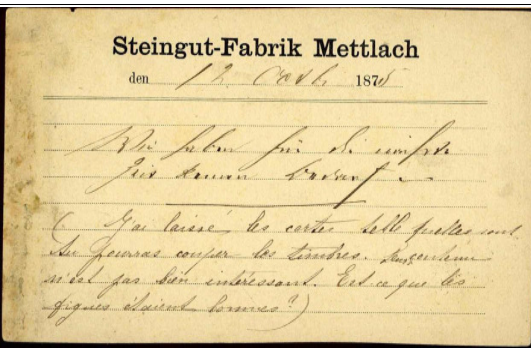 Steingut-Fabrik Mettlach
den 12 Octb. 1875
Wir haben für die nächste
Zeit keinen Bedarf
( J'ai laissé les cartes telle quelles sont
tu pourras couper les timbres. contenu
n'est pas bien intéressant. Est ce que les
figues étaient bonnes ? )